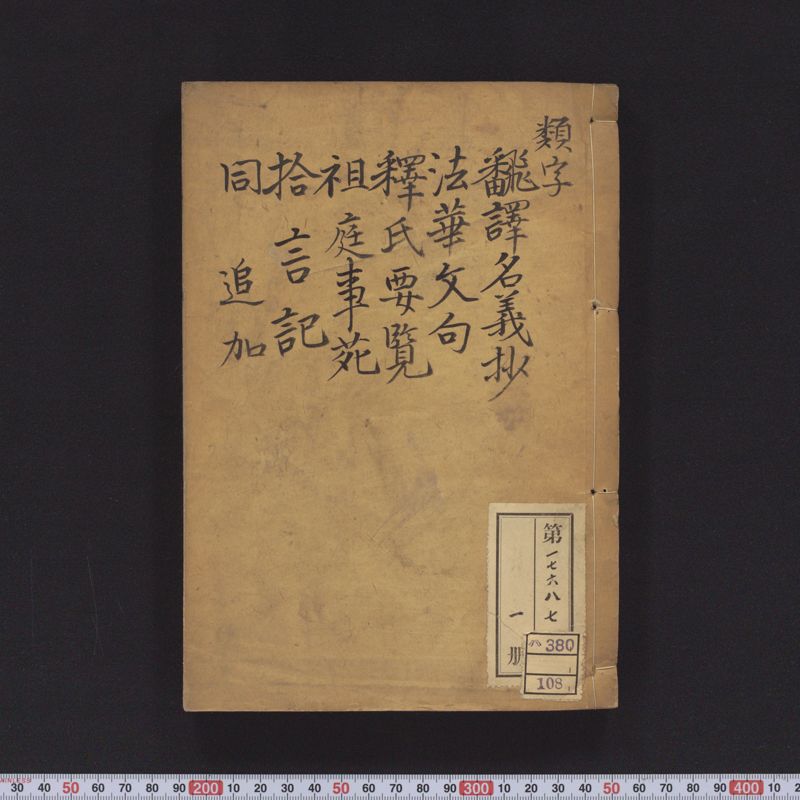 類字
翻譯名義抄
法華文句
釋氏要覽
祖庭事苑
拾言記
同追加
第一七六八七
一冊
ハ 380
1
108
1
30 40 50 60 70 80 90 200 10 20 30 40 50 60 70 80 90 300 10 20 30 40 50 60 70 80 90 400 10 2